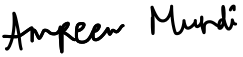 Ampeem Mundi